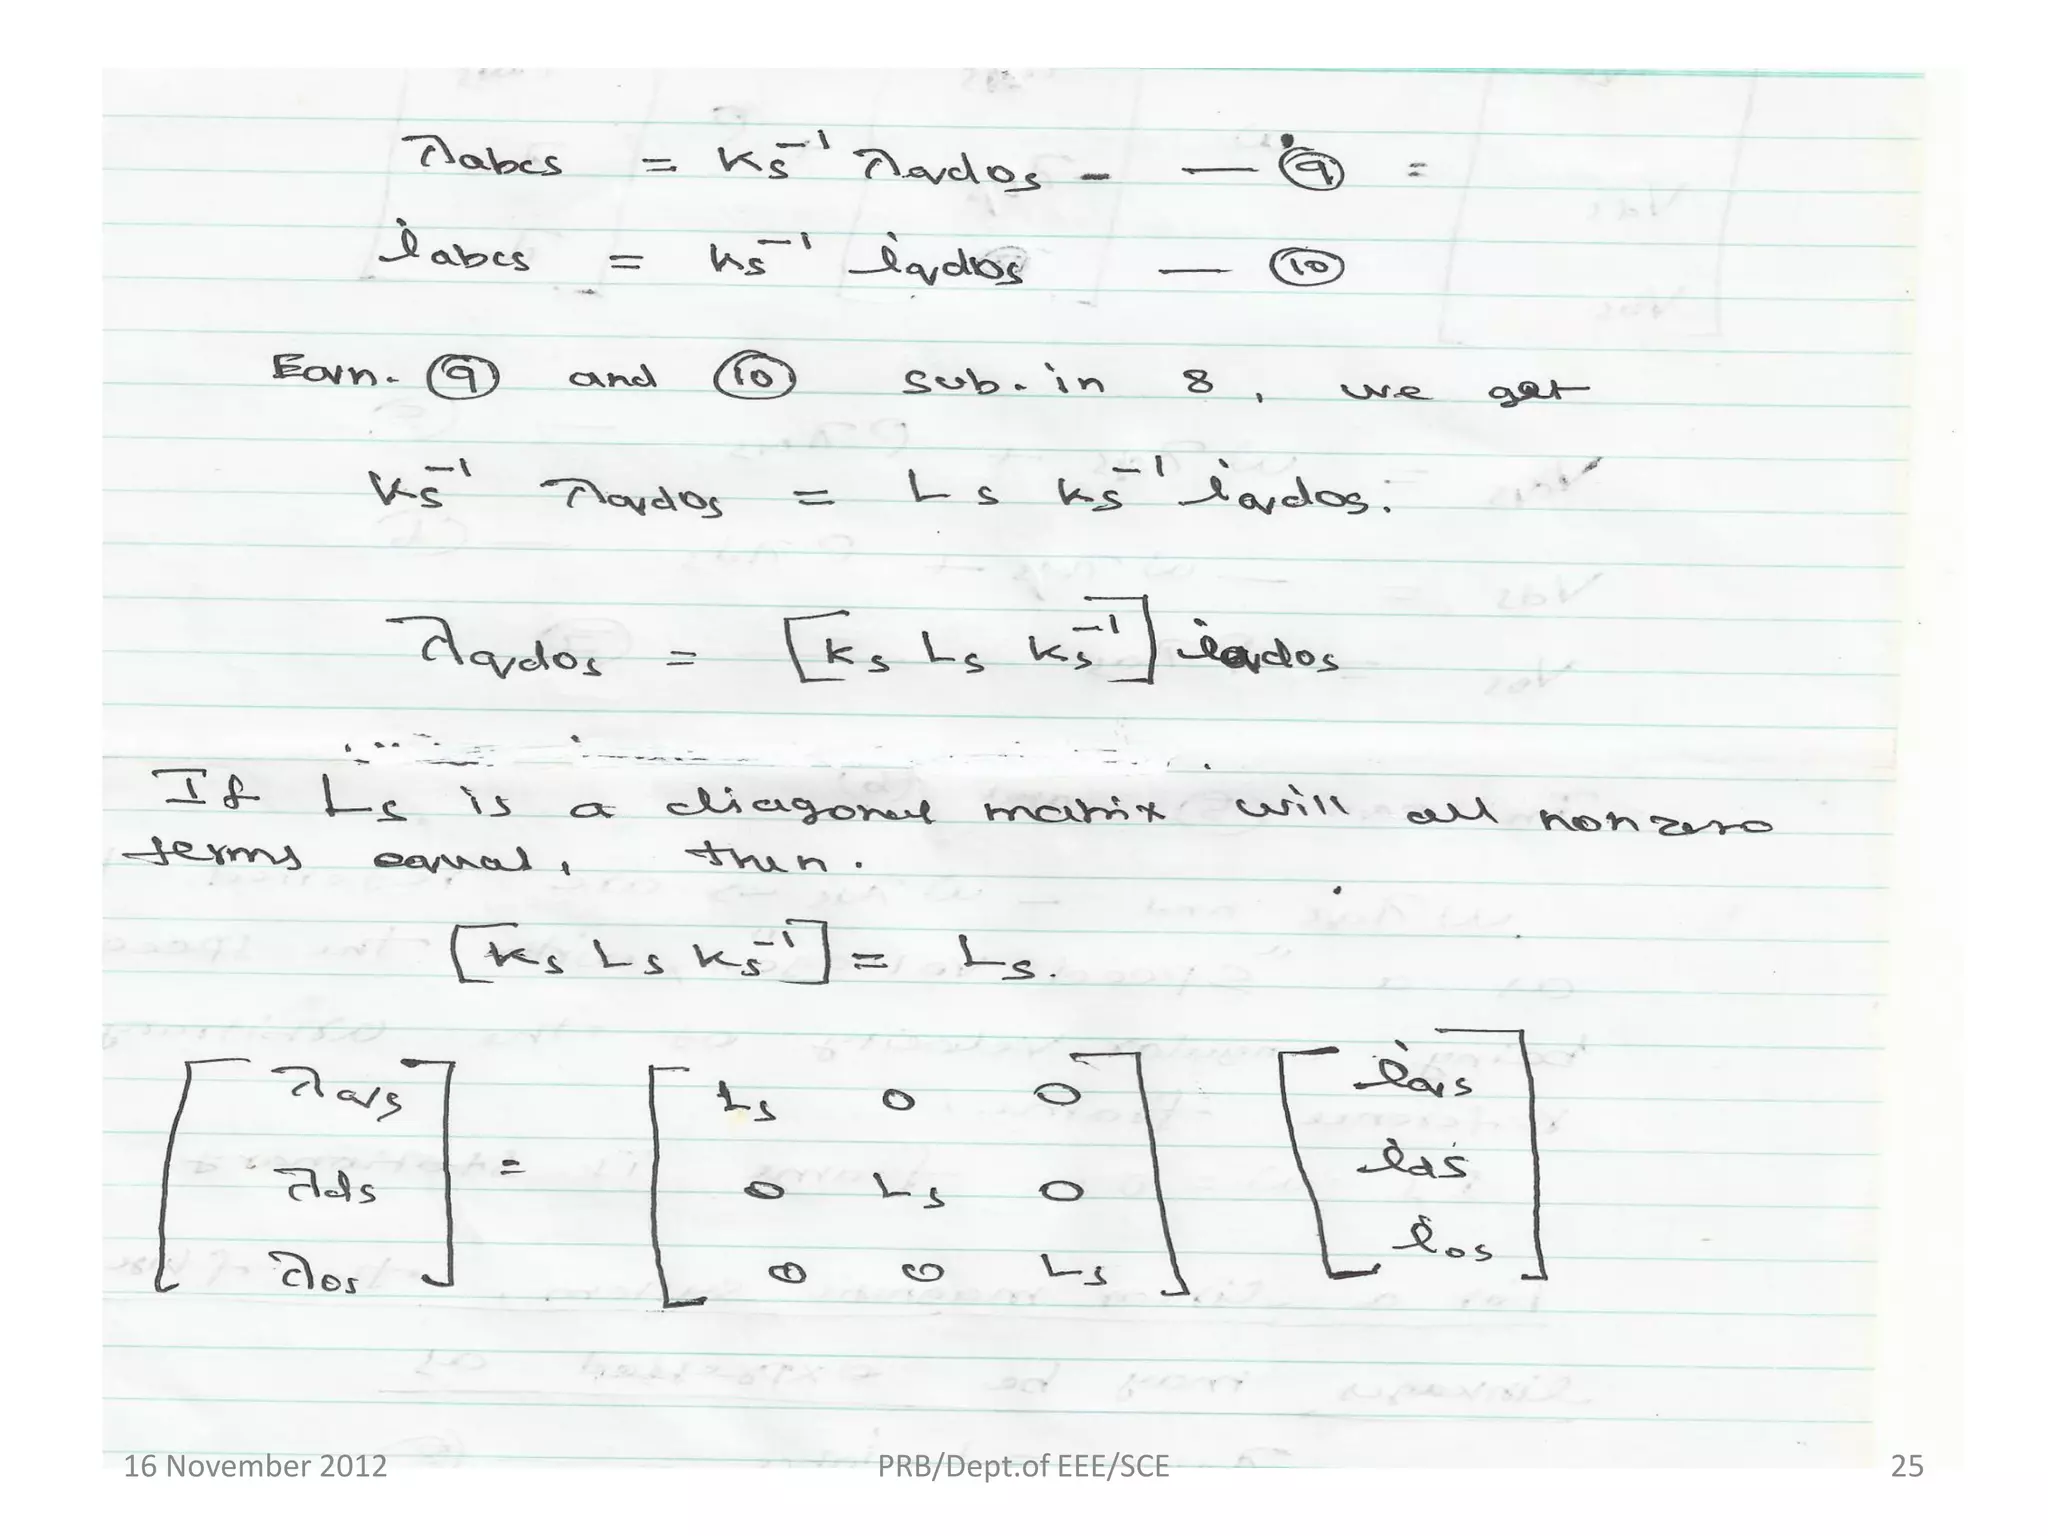 λabcs = Ks⁻¹ λqdos - — ⑨ =
iabcs = Ks⁻¹ iqdos — ⑩
Eqn. ⑨ and ⑩ sub. in 8, we get
Ks⁻¹ λqdos = Ls Ks⁻¹ iqdos.
λqdos = [Ks Ls Ks⁻¹] iqdos
If Ls is a diagonal matrix will all nonzero
terms equal, then.
[Ks Ls Ks⁻¹] = Ls.
[λqs λds λos] = [Ls 0 0 0 Ls 0 0 0 Ls] [iqs ids ios]
16 November 2012 PRB/Dept.of EEE/SCE 25